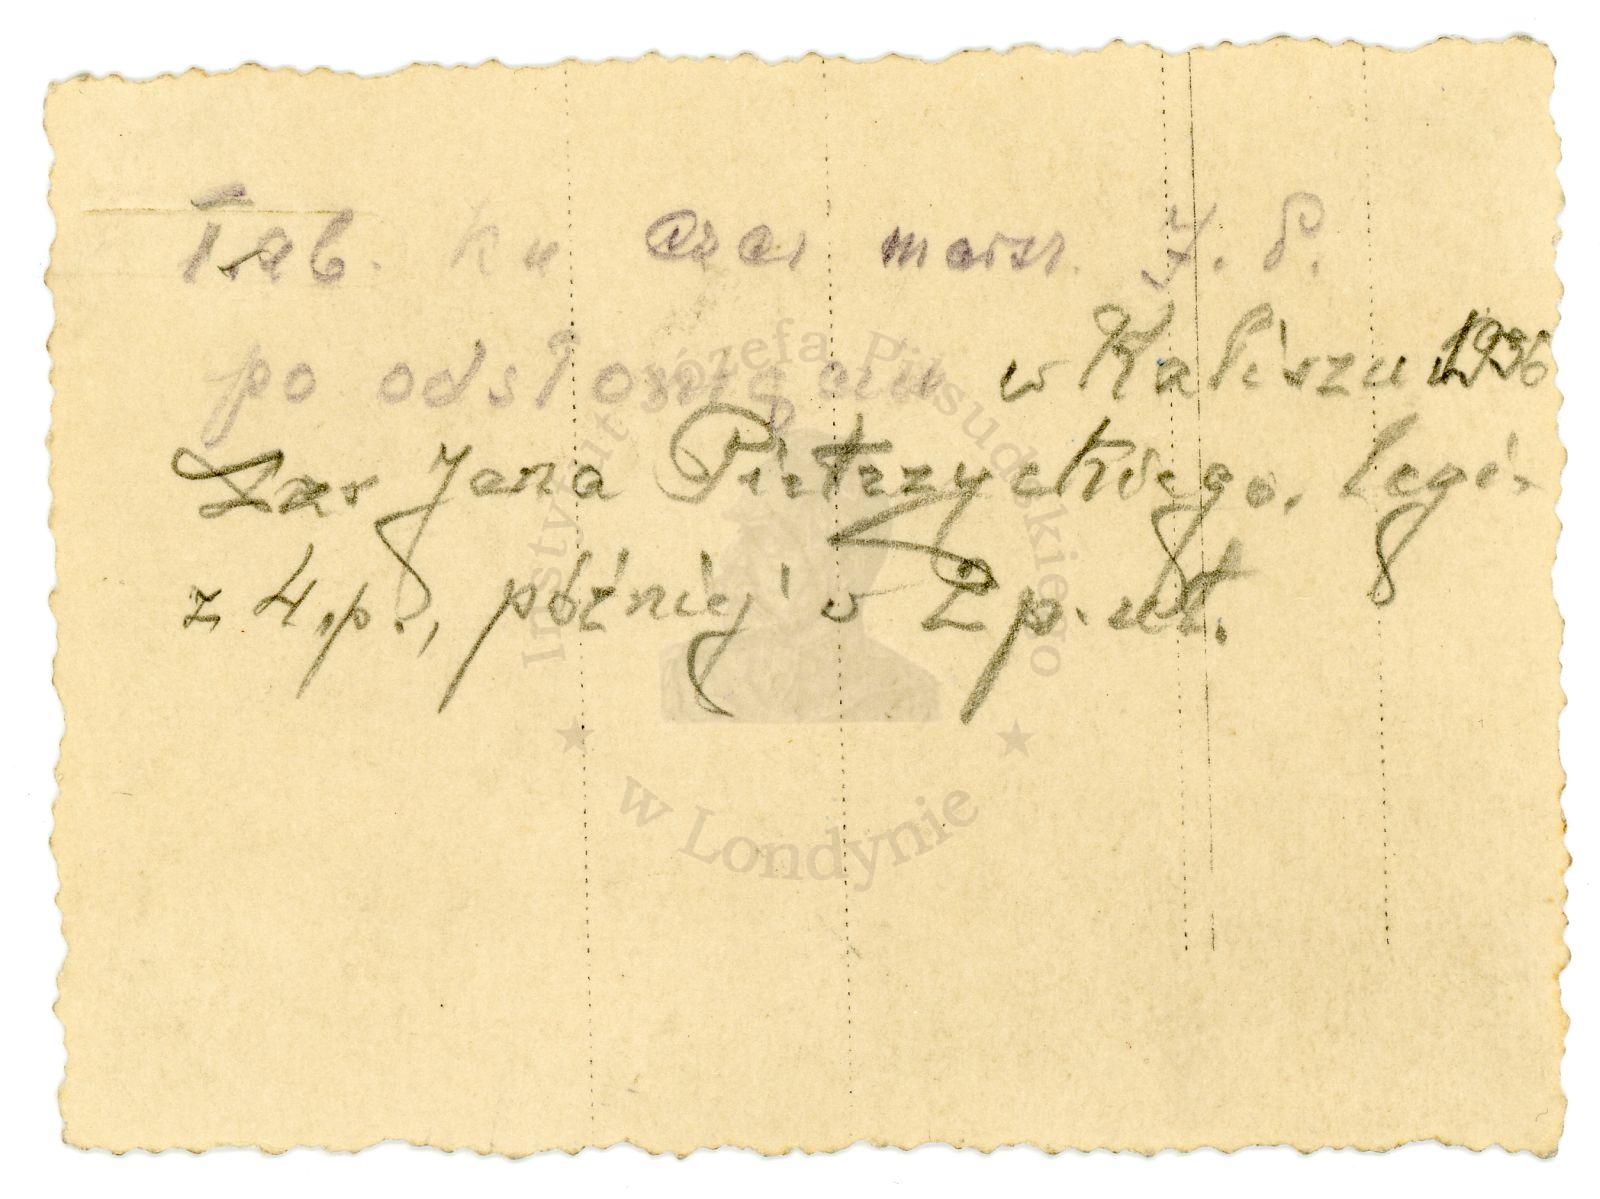 Tab. ku czci marsz. J. P.
po odsłonięciu w Kaliszu 1936
Jana Pietrzyckiego, legi.
z 4.p., później w 2 p. uł.
Instytut Józefa Piłsudskiego
w Londynie